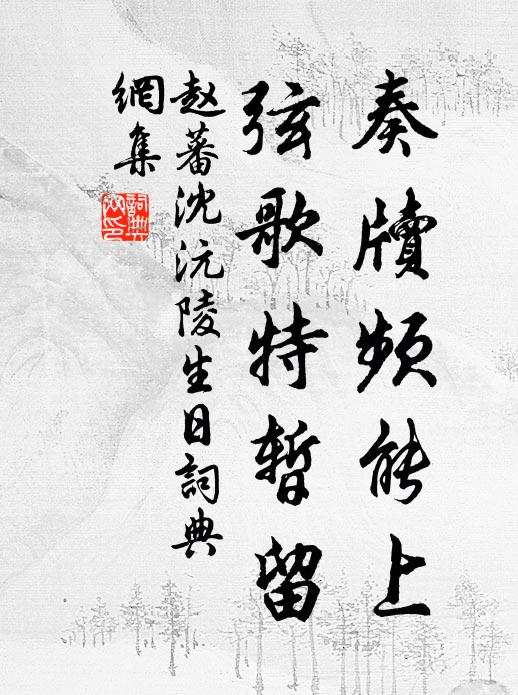 奏牘頻能上
弦歌特暫留
赵蕃沈沅陵生日詞典
網集
詞典網印